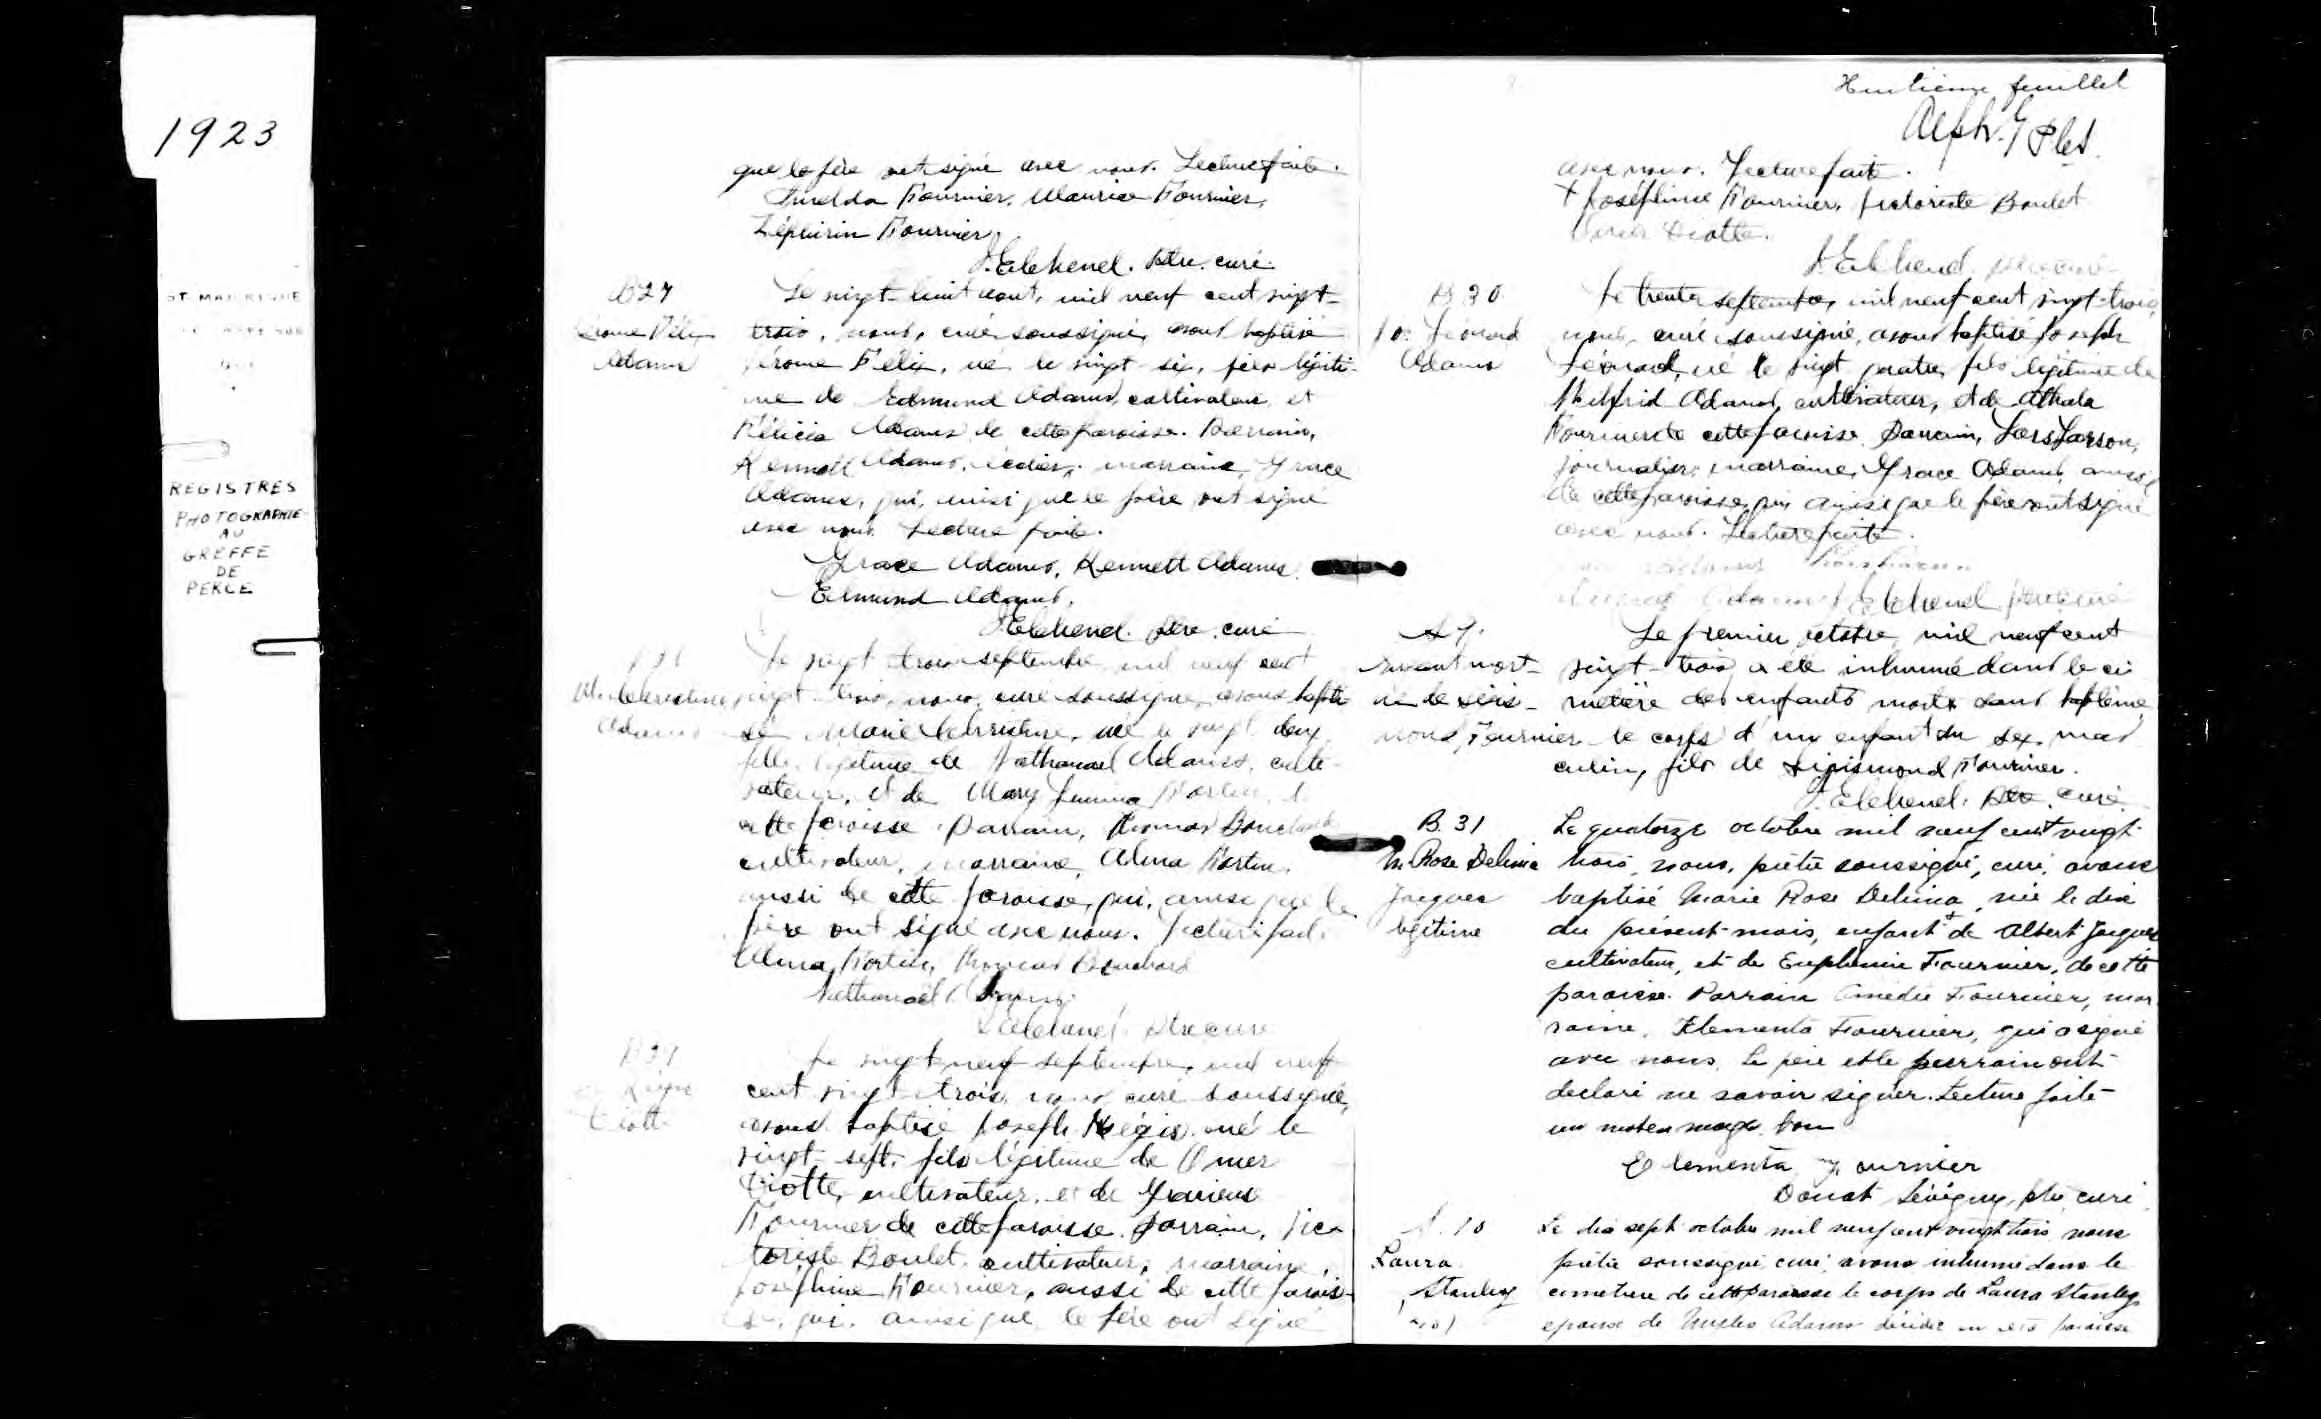 1923
REGISTRES
PHOTOGRAPHIE
AU
GREFFE
DE
PERCE
que le père ont signé avec nous. Lecture faite.
Imelda Fournier, Maurice Fournier,
Zéphirin Fournier,
Ptre. curé.
B 27
Jérome Félix
Adams
Le vingt-huit aout, mil neuf cent vingt-
trois, nous, curé soussigné, avons baptisé
Jérome Félix, né le vingt-six, fils légiti-
me de Edmund Adams, cultivateur, et
Félicia Adams de cette paroisse. Parrain,
Kennett Adams, marraine, Grace
Adams, qui, ainsi que le père ont signé
avec nous. Lecture faite.
Grace Adams, Kennett Adams.
Edmund Adams.
Ptre. curé
M. Christine
Adams
Le vingt-trois septembre, mil neuf cent
vingt-trois, nous, curé soussigné, avons bapti-
sé Marie Christine, née le vingt deux,
fille légitime de Nathanael Adams, culti-
vateur, et de Mary Fortin, de
cette paroisse. Parrain, Thomas Bouchard
cultivateur, marraine, Alma Fortin,
aussi de cette paroisse, qui, ainsi que le
père ont signé avec nous. Lecture faite.
Alma Fortin, Thomas Bouchard
Nathanaël Adams
Ptre curé
Le vingt-neuf septembre, mil neuf
cent vingt-trois, nous, curé soussigné,
avons baptisé Joseph Régis, né le
vingt-sept, fils légitime de Omer
Diotte, cultivateur, et de
Fournier de cette paroisse. Parrain, Vic-
toriste Boulet, cultivateur, marraine,
Joséphine Fournier, aussi de cette parois-
se, qui, ainsi que le père ont signé
Huitième feuillet
avec nous. Lecture faite.
+ Joséphine Fournier, Victoriste Boulet
Omer Diotte.
Ptre curé
B 30
Jos. Léonard
Adams
Le trente septembre, mil neuf cent vingt-trois,
nous, curé soussigné, avons baptisé Joseph
Léonard, né le vingt-quatre, fils légitime de
Wilfrid Adams, cultivateur, et de Athala
Fournier de cette paroisse. Parrain, Lars Larson,
journalier, marraine, Grace Adams, aussi
de cette paroisse, qui ainsi que le père ont signé
avec nous. Lecture faite.
Adams
Adams
Enfant mort-
né de Sigis-
mond Fournier
Le premier octobre, mil neuf cent
vingt-trois a été inhumé dans le ci-
metière des enfants morts sans baptême,
le corps d'un enfant du sexe mas-
culin, fils de Sigismond Fournier.
Ptre. curé.
B. 31
M. Rose Delima
Jacques
légitime
Le quatorze octobre mil neuf cent vingt-
trois, nous, prêtre soussigné, curé, avons
baptisé Marie Rose Delima, née le dix
du présent mois, enfant + de Albert Jacques
cultivateur, et de Euphémie Fournier, de cette
paroisse. Parrain Amédée Fournier, mar-
raine, Elementa Fournier, qui a signé
avec nous. Le père et le parrain ont
déclaré ne savoir signer. Lecture faite
un mot en marge bon
Elementa Fournier
Donat Lévigny, ptre, curé.
S. 10
Laura
Stanley
Le dix sept octobre mil neuf cent vingt trois, nous
prêtre soussigné, curé, avons inhumé dans le
cimetière de cette paroisse le corps de Laura Stanley
épouse de Adams décédée en cette paroisse